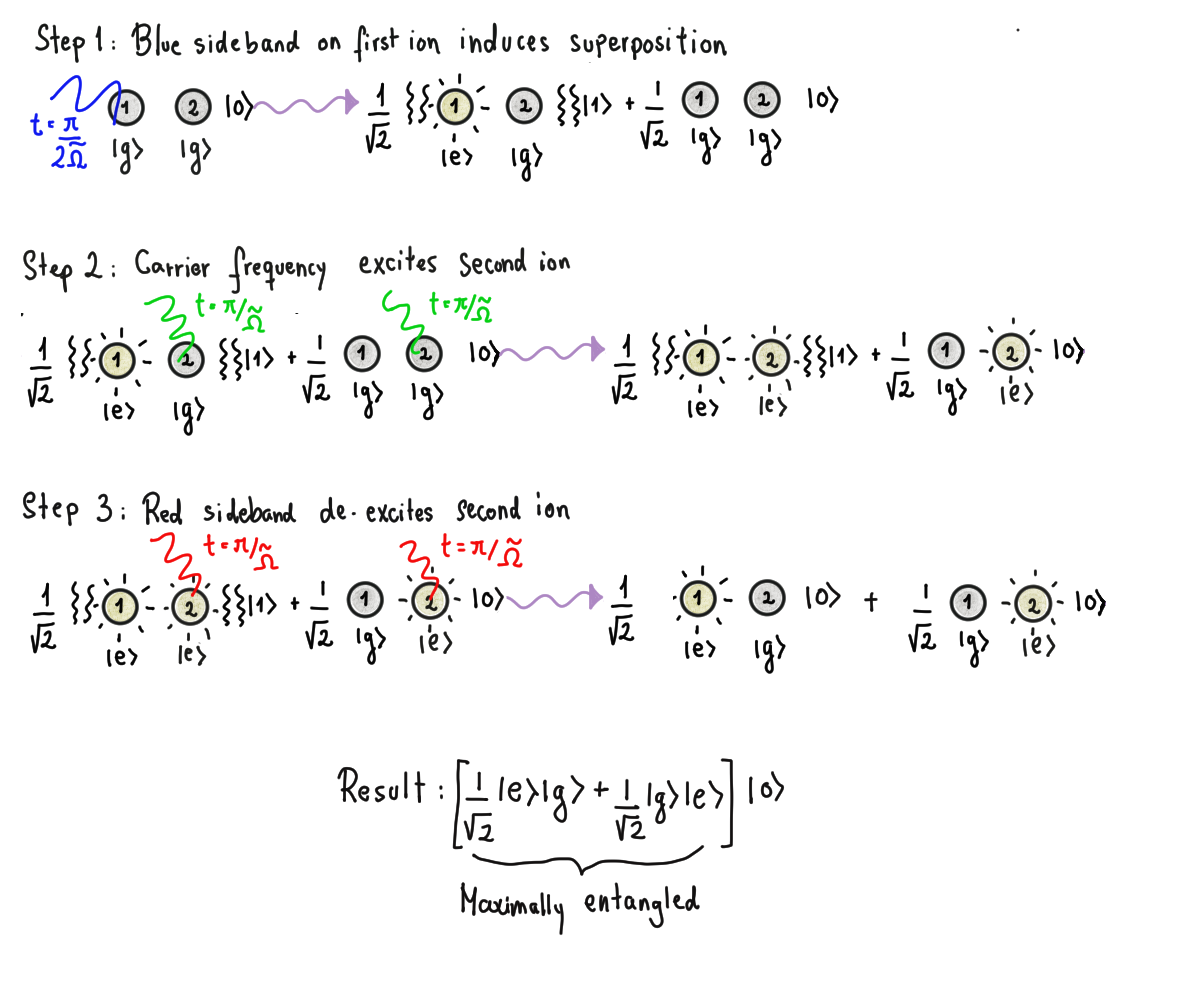 Step 1: Blue sideband on first ion induces superposition
t = π/2Ω̃ 1 2 |0⟩ 1/√2 1 2 |1⟩ + 1/√2 1 2 |0⟩
|g⟩ |g⟩ |e⟩ |g⟩ |g⟩ |g⟩
Step 2: Carrier frequency excites second ion
t = π/Ω̃ t = π/Ω̃
1/√2 1 2 |1⟩ + 1/√2 1 2 |0⟩ 1/√2 1 2 |1⟩ + 1/√2 1 2 |0⟩
|e⟩ |g⟩ |g⟩ |g⟩ |e⟩ |e⟩ |g⟩ |e⟩
Step 3: Red sideband de-excites second ion
t = π/Ω̃ t = π/Ω̃
1/√2 1 2 |1⟩ + 1/√2 1 2 |0⟩ 1/√2 1 2 |0⟩ + 1/√2 1 2 |0⟩
|e⟩ |e⟩ |g⟩ |e⟩ |e⟩ |g⟩ |g⟩ |e⟩
Result: [1/√2 |e⟩|g⟩ + 1/√2 |g⟩|e⟩] |0⟩
Maximally entangled